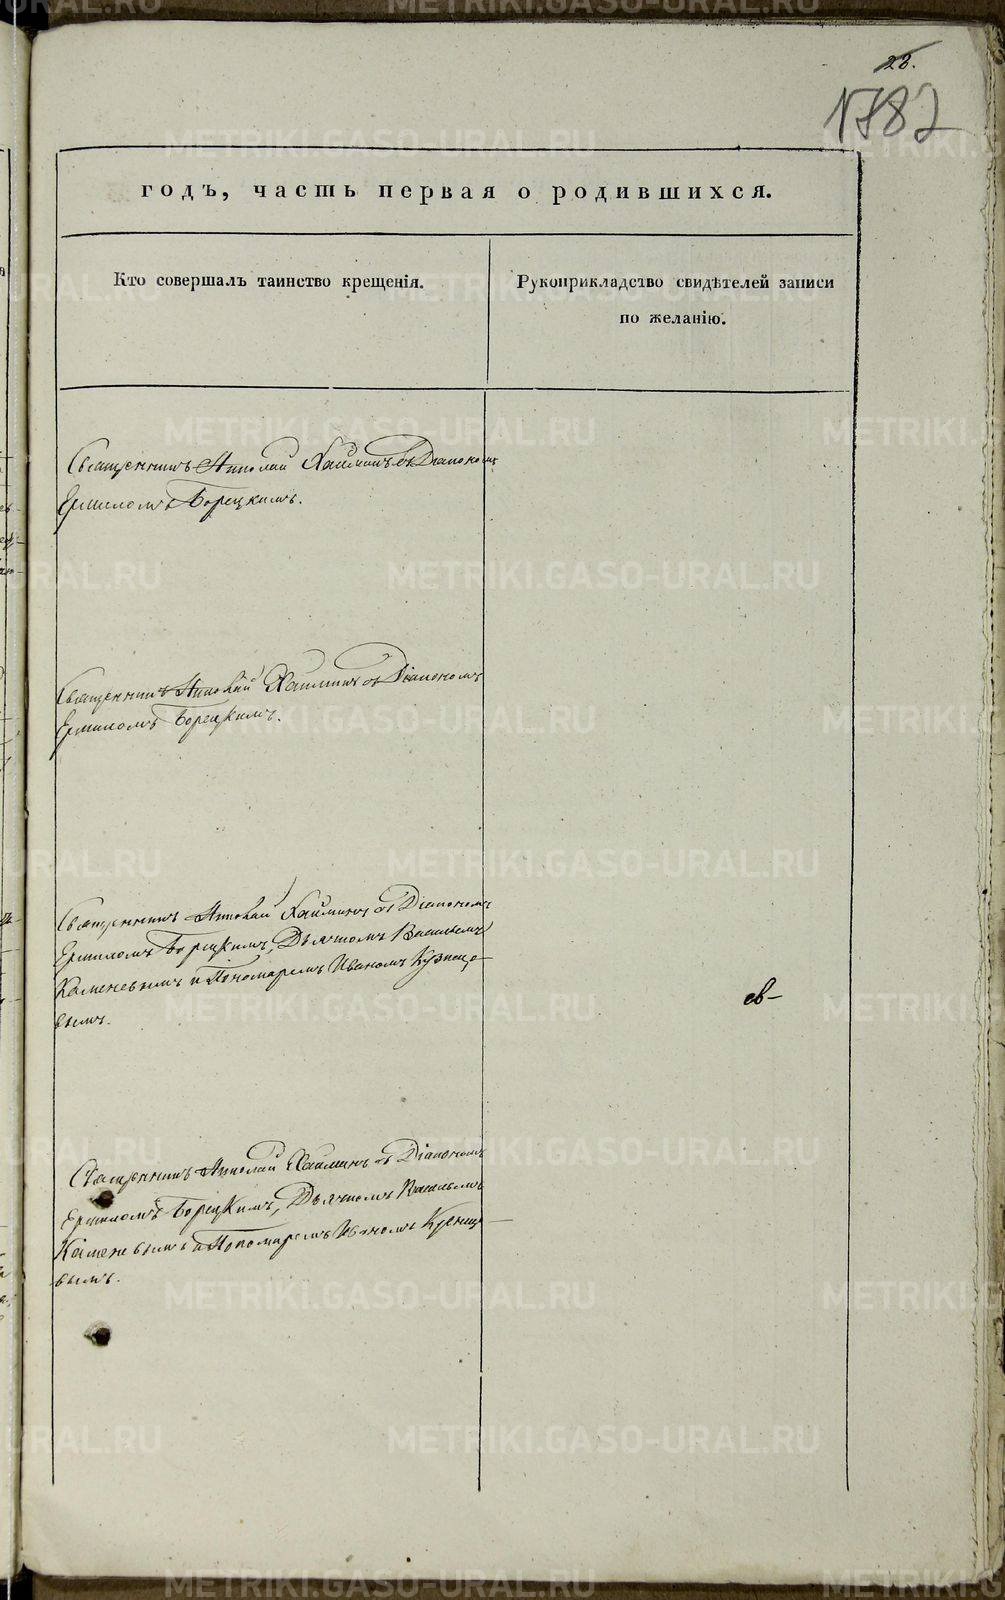 28.
1787
годъ, часть первая о родившихся.
Кто совершалъ таинство крещенія.
Рукоприкладство свидѣтелей записи
по желанію.
Священникъ Николай Хайминъ съ Діакономъ
Ермиломъ Борецкимъ.
Священникъ Николай Хайминъ съ Діакономъ
Ермиломъ Борецкимъ.
Священникъ Николай Хайминъ съ Діакономъ
Ермиломъ Борецкимъ, Дьячкомъ Васильемъ
Каменевымъ и Пономаремъ Иваномъ Кузнецо-
вымъ.
Священникъ Николай Хайминъ съ Діакономъ
Ермиломъ Борецкимъ, Дьячкомъ Васильемъ
Каменевымъ и Пономаремъ Иваномъ Кузнец
вымъ.
METRIKI.GASO-URAL.RU